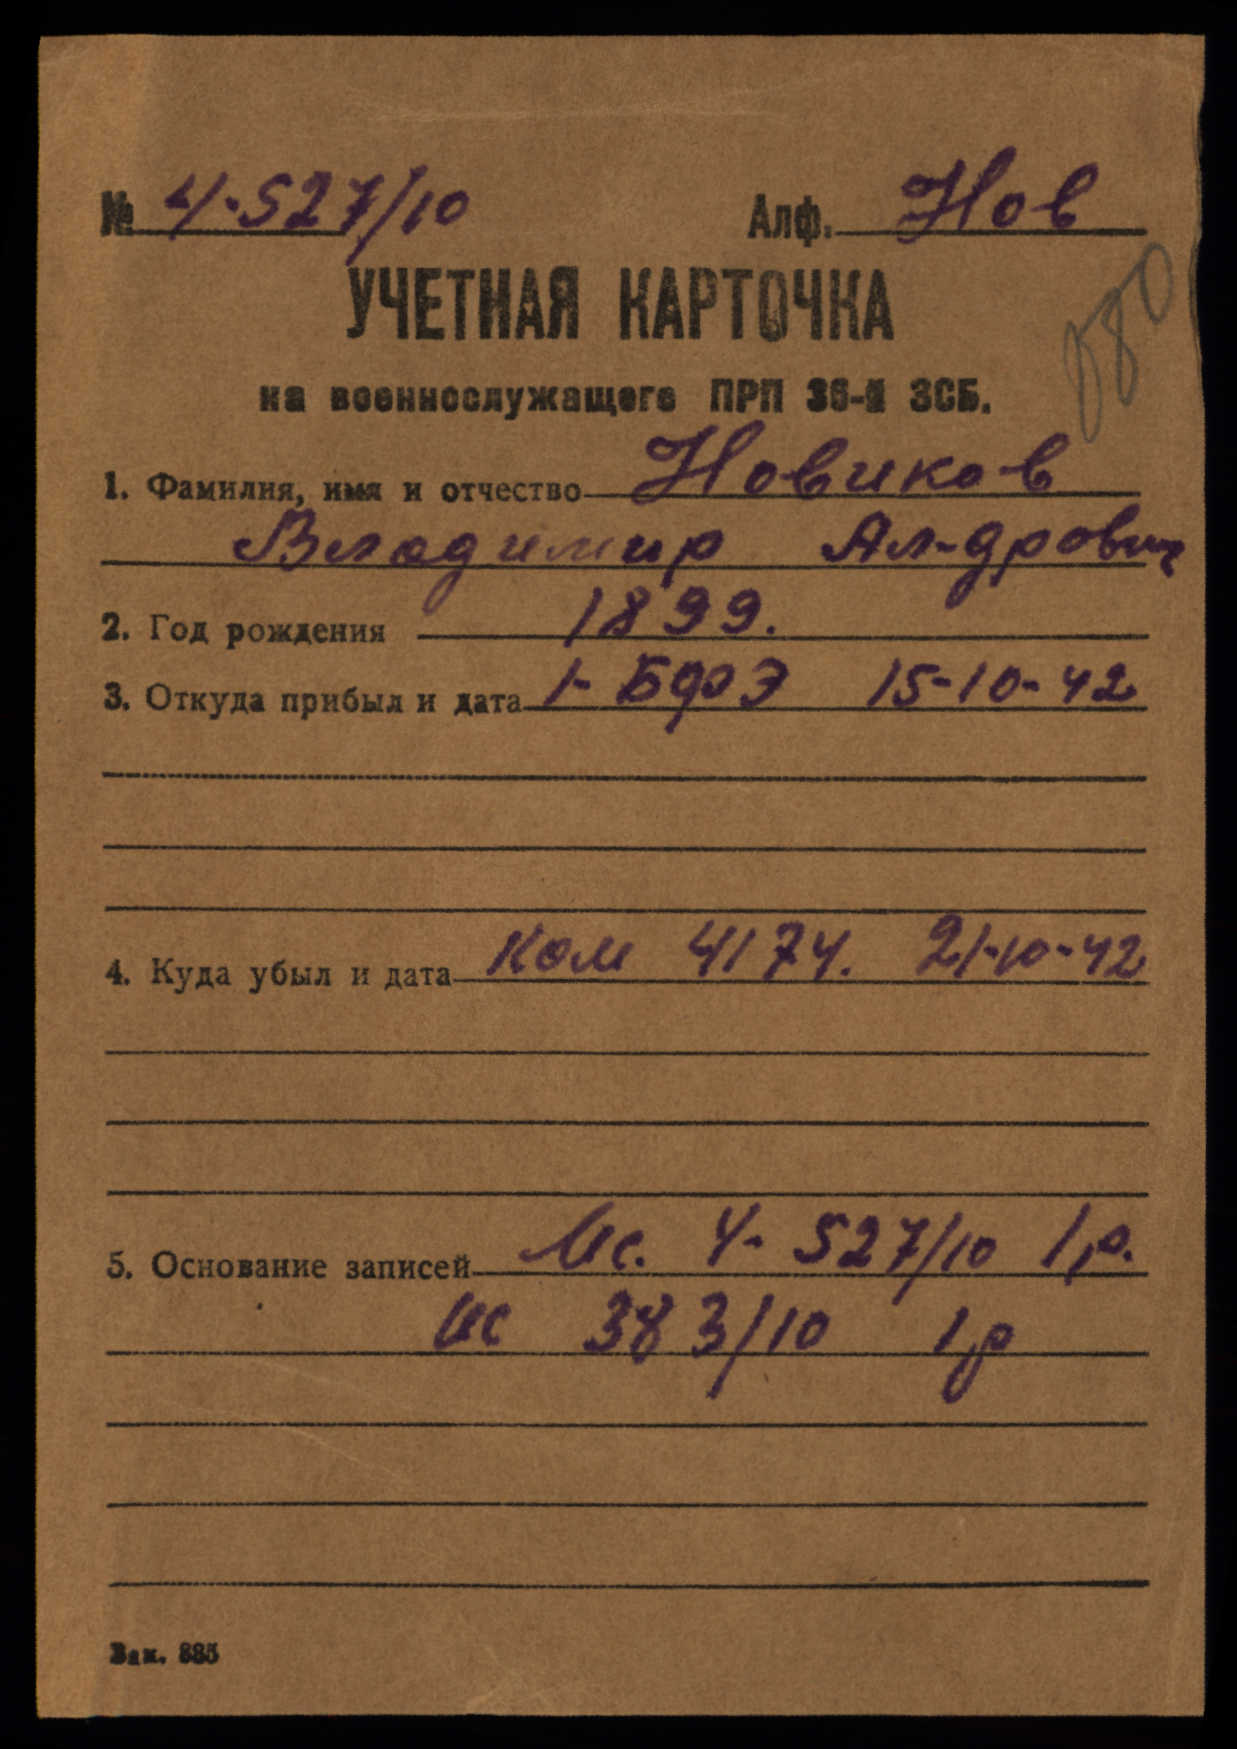 № 4-527/10 Алф. Нов
УЧЕТНАЯ КАРТОЧКА
на военнослужащего ПРП 36-й ЗСБ.
1. Фамилия, имя и отчество Новиков
Владимир Ал-дрович
2. Год рождения 1899.
3. Откуда прибыл и дата 1- БФЭ 15-10-42
4. Куда убыл и дата Ком 4174. 21-10-42
5. Основание записей Ис. 4-527/10 1р.
Ис 383/10 1р
Зак. 885